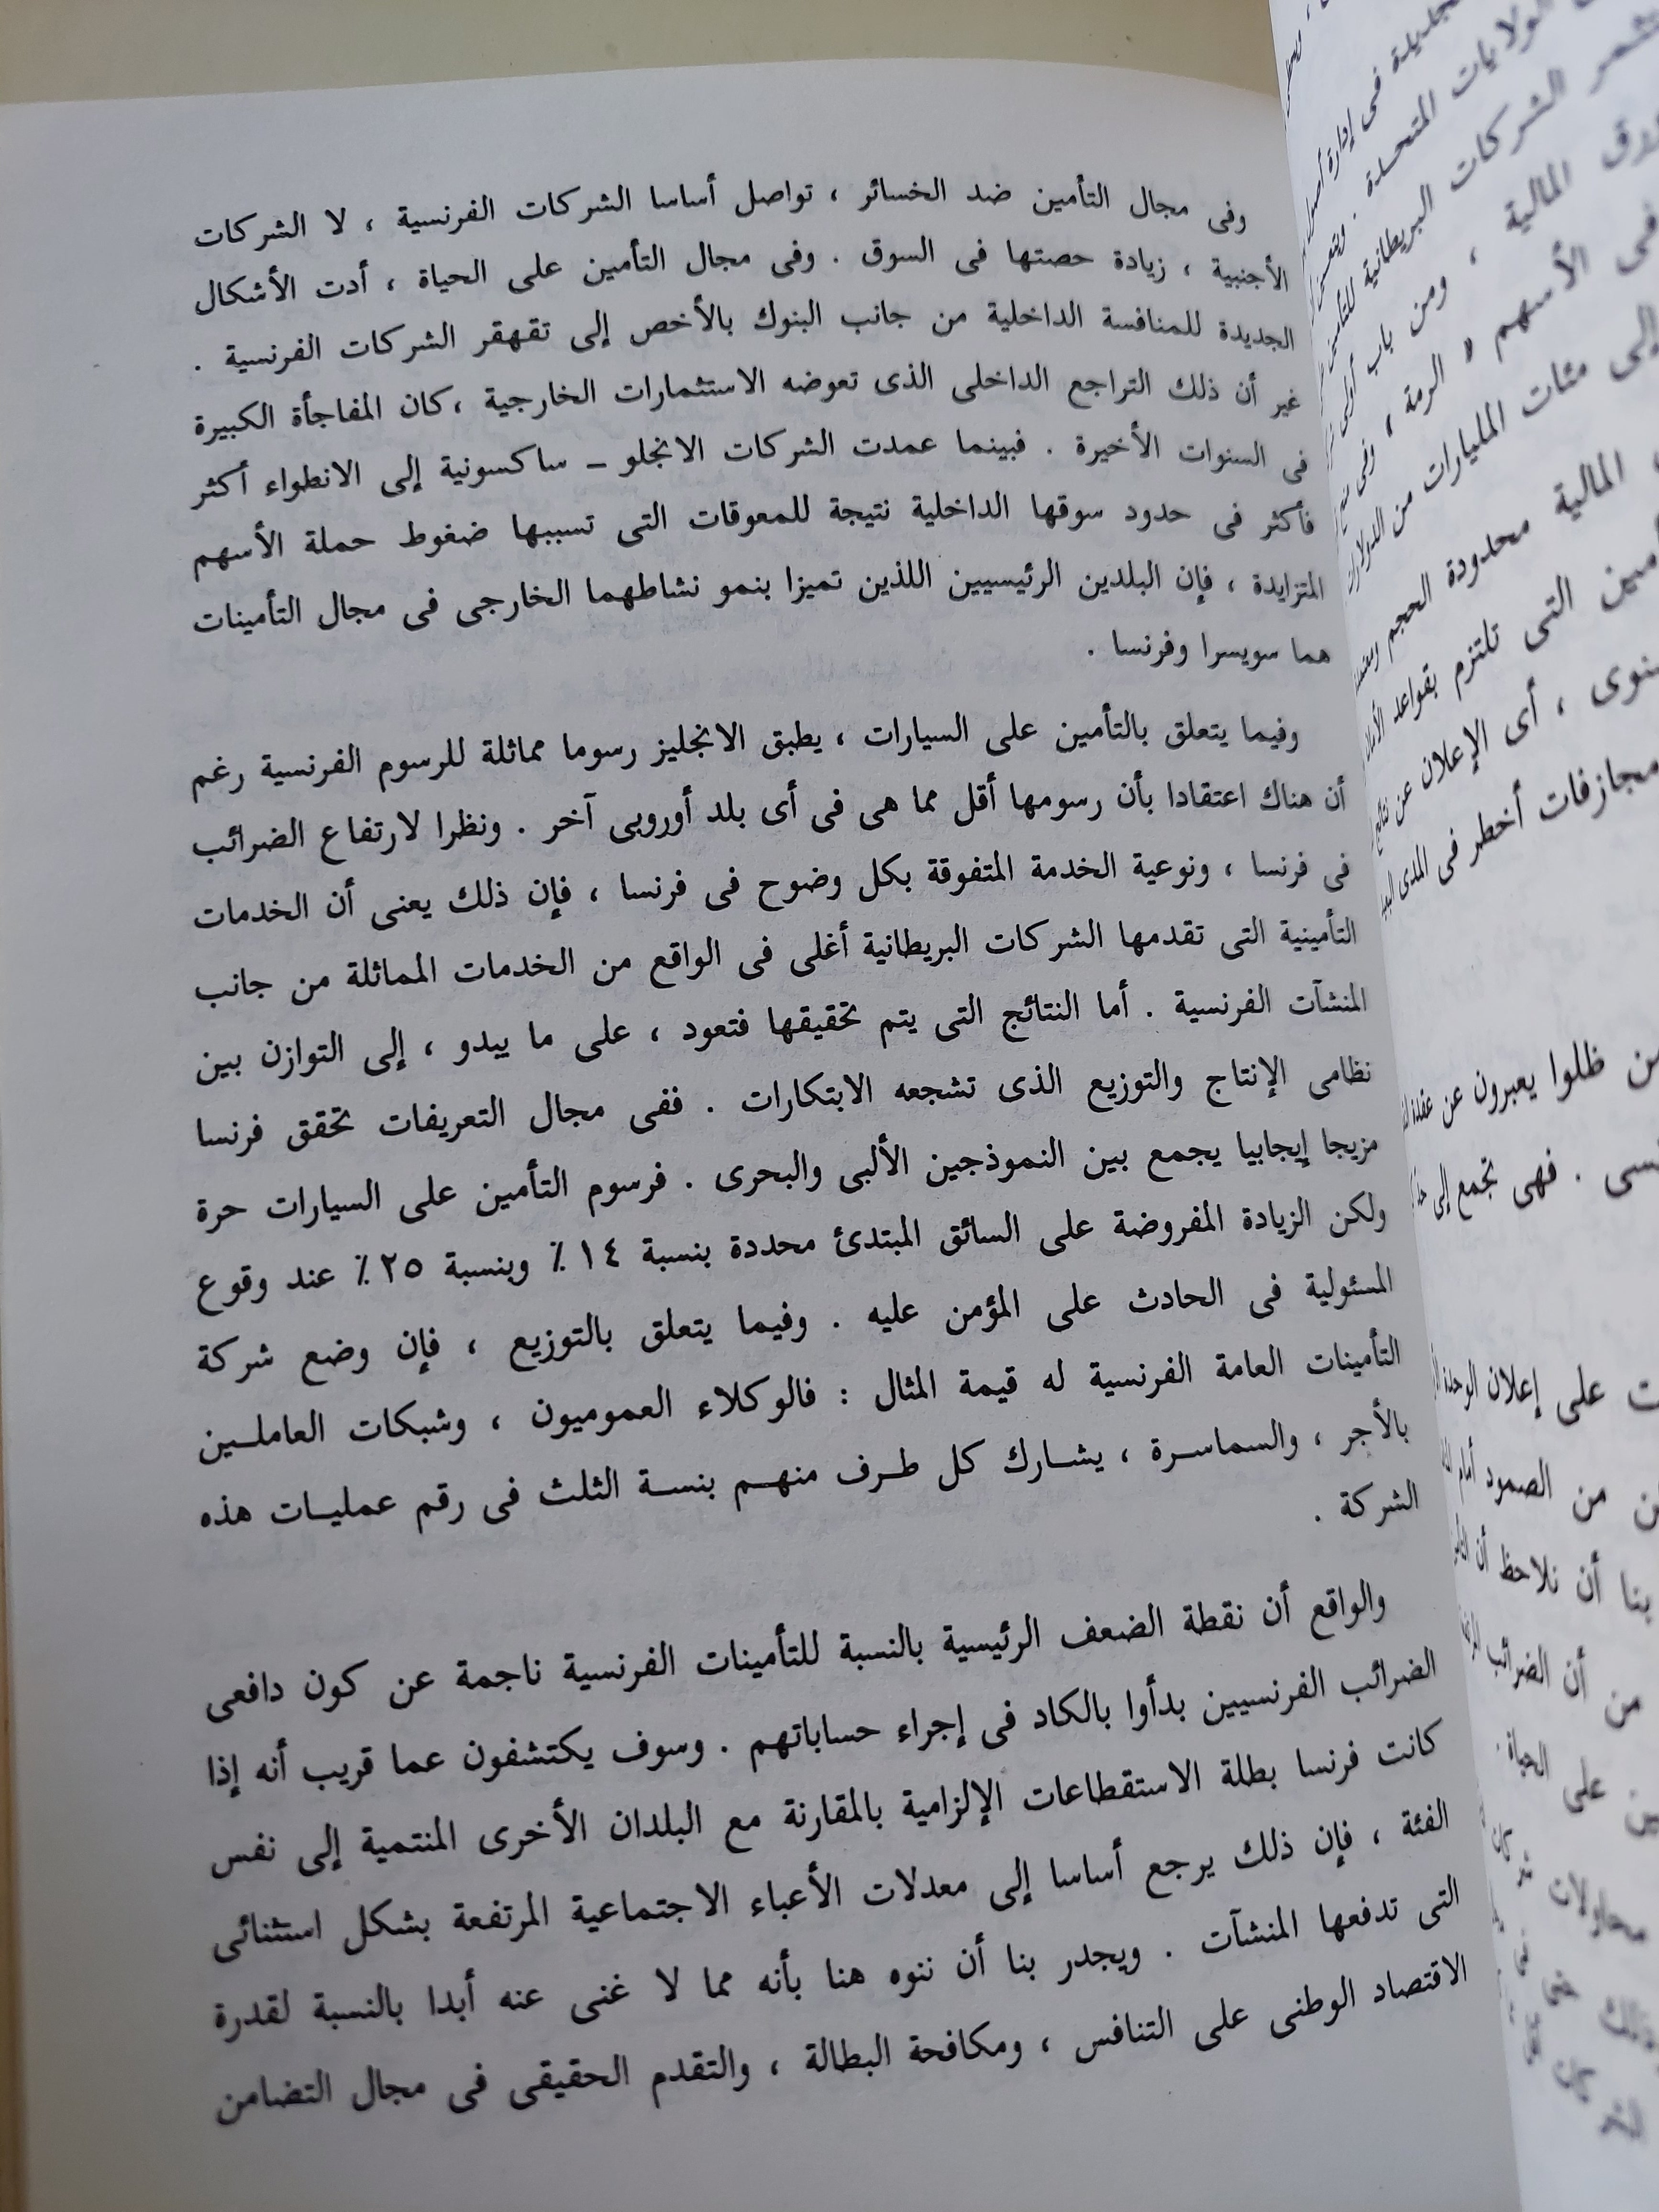 وفى مجال التأمين ضد الخسائر ، تواصل أساسا الشركات الفرنسية ، لا الشركات
الأجنبية ، زيادة حصتها فى السوق . وفى مجال التأمين على الحياة ، أدت الأشكال
الجديدة للمنافسة الداخلية من جانب البنوك بالأخص إلى تقهقر الشركات الفرنسية .
غير أن ذلك التراجع الداخلى الذى تعوضه الاستثمارات الخارجية ، كان المفاجأة الكبيرة
فى السنوات الأخيرة . فبينما عمدت الشركات الانجلو – ساكسونية إلى الانطواء أكثر
فأكثر فى حدود سوقها الداخلية نتيجة للمعوقات التى تسببها ضغوط حملة الأسهم
المتزايدة ، فإن البلدين الرئيسيين اللذين تميزا بنمو نشاطهما الخارجى فى مجال التأمينات
هما سويسرا وفرنسا .
وفيما يتعلق بالتأمين على السيارات ، يطبق الانجليز رسوما مماثلة للرسوم الفرنسية رغم
أن هناك اعتقادا بأن رسومها أقل مما هى فى أى بلد أوروبى آخر . ونظرا لارتفاع الضرائب
فى فرنسا ، ونوعية الخدمة المتفوقة بكل وضوح فى فرنسا ، فإن ذلك يعنى أن الخدمات
التأمينية التى تقدمها الشركات البريطانية أغلى فى الواقع من الخدمات المماثلة من جانب
المنشآت الفرنسية . أما النتائج التى يتم تحقيقها فتعود ، على ما يبدو ، إلى التوازن بين
نظامى الإنتاج والتوزيع الذى تشجعه الابتكارات . ففى مجال التعريفات تحقق فرنسا
مزيجا إيجابيا يجمع بين النموذجين الألبى والبحرى . فرسوم التأمين على السيارات حرة
ولكن الزيادة المفروضة على السائق المبتدئ محددة بنسبة ١٤ ٪ وبنسبة ٢٥ ٪ عند وقوع
المسئولية فى الحادث على المؤمن عليه . وفيما يتعلق بالتوزيع ، فإن وضع شركة
التأمينات العامة الفرنسية له قيمة المثال : فالوكلاء العموميون ، وشبكات العاملين
بالأجر ، والسماسرة ، يشارك كل طرف منهم بنسة الثلث فى رقم عمليات هذه
الشركة .
والواقع أن نقطة الضعف الرئيسية بالنسبة للتأمينات الفرنسية ناجمة عن كون دافعى
الضرائب الفرنسيين بدأوا بالكاد فى إجراء حساباتهم . وسوف يكتشفون عما قريب أنه إذا
كانت فرنسا بطلة الاستقطاعات الإلزامية بالمقارنة مع البلدان الأخرى المنتمية إلى نفس
الفئة ، فإن ذلك يرجع أساسا إلى معدلات الأعباء الاجتماعية المرتفعة بشكل استثنائى
التى تدفعها المنشآت . ويجدر بنا أن ننوه هنا بأنه مما لا غنى عنه أبدا بالنسبة لقدرة
الاقتصاد الوطنى على التنافس ، ومكافحة البطالة ، والتقدم الحقيقى فى مجال التضامن
الولايات المتحدة .
الشركات البريطانية
المالية ، ومن باب أولى
فى الأسهم « الرمة » ، وفى
إلى مئات المليارات من الدولارات
المالية محدودة الحجم
التى تلتزم بقواعد
أى الإعلان عن
مجازفات أخطر فى المدى
ظلوا يعبرون عن
فهى تجمع إلى
على إعلان الوحدة
من الصمود أمام
بنا أن نلاحظ أن
من أن الضرائب
على الحياة .
محاولات